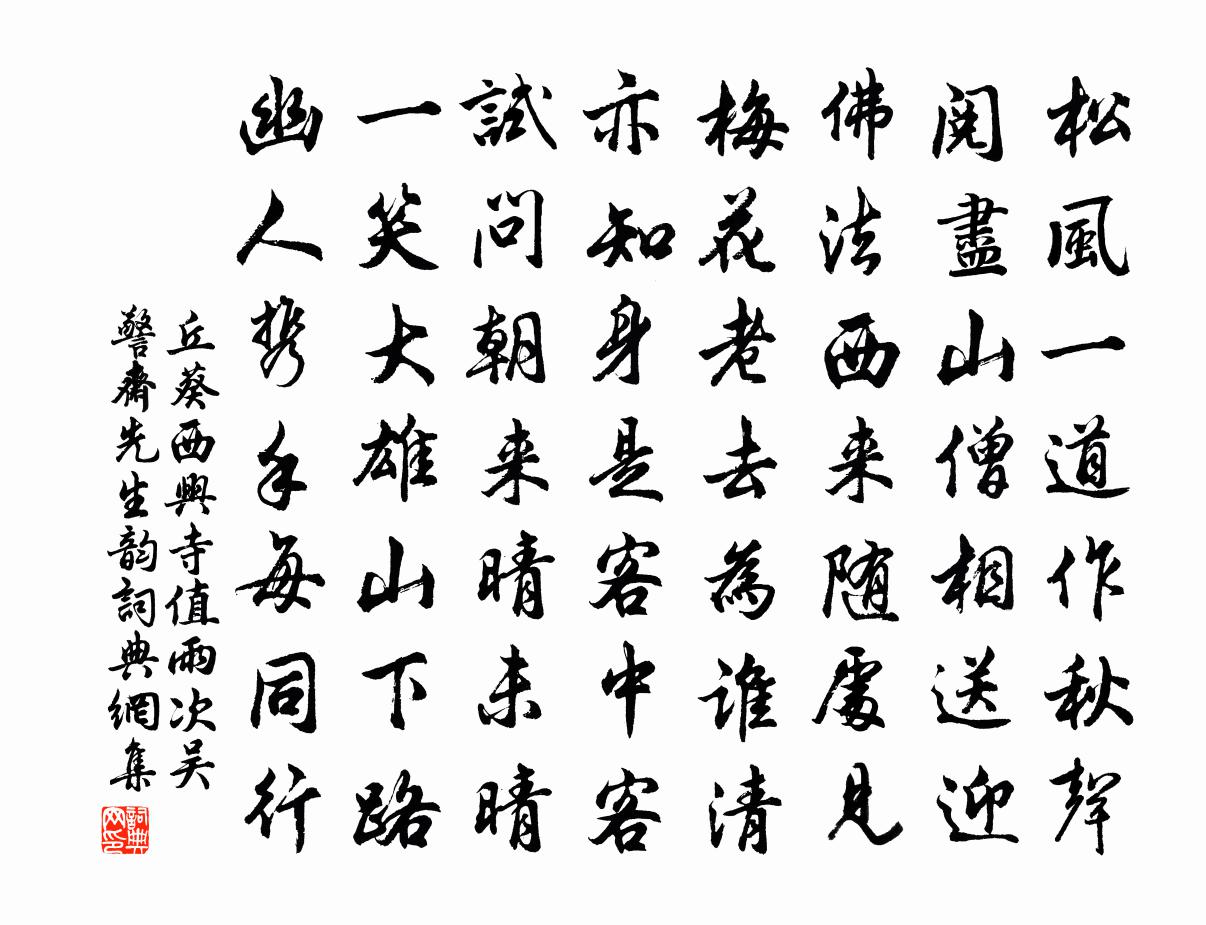 松風一道作秋聲
閱盡山僧相送迎
佛法西来随處見
梅花老去為誰清
亦知身是客中客
試問朝来晴未晴
一笑大雄山下路
幽人携手每同行
丘葵西興寺值雨次吴
警齋先生韵詞典網集
詞典網印